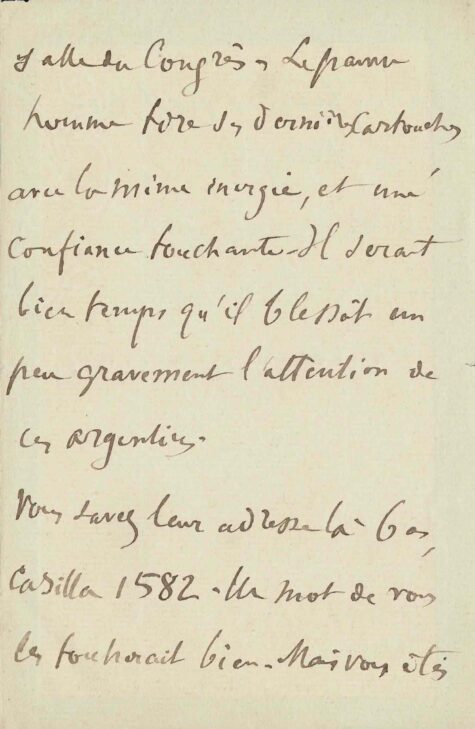 Salle du Congrès. Le pauvre
homme tire ses dernières cartouches
avec la même énergie, et une
confiance touchante. Il serait
bien temps qu'il blessât un
peu gravement l'attention de
ces argentins.
Vous savez leur adresse là-bas,
Casilla 1582. Un mot de vous
les toucherait bien. Mais vous êtes